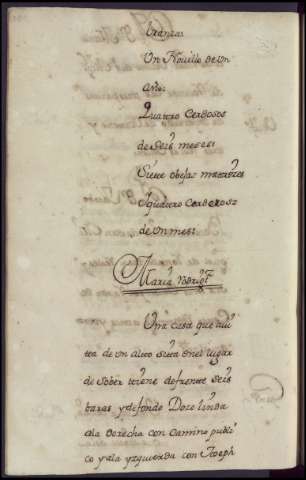 Crianzas
Un Novillo de un
año:
Quatro Cerdosos
de Seis meses:
Siete obejas matrizes
Yquatro Corderos
de un mes:
Maria Rodrigz
Una casa que avi
ta de un alto sita enel lugar
de Sober tiene defrente Seis
baras y defondo Doze linda
ala Derecha con Camino publi
co y ala yzquierda con Joseph